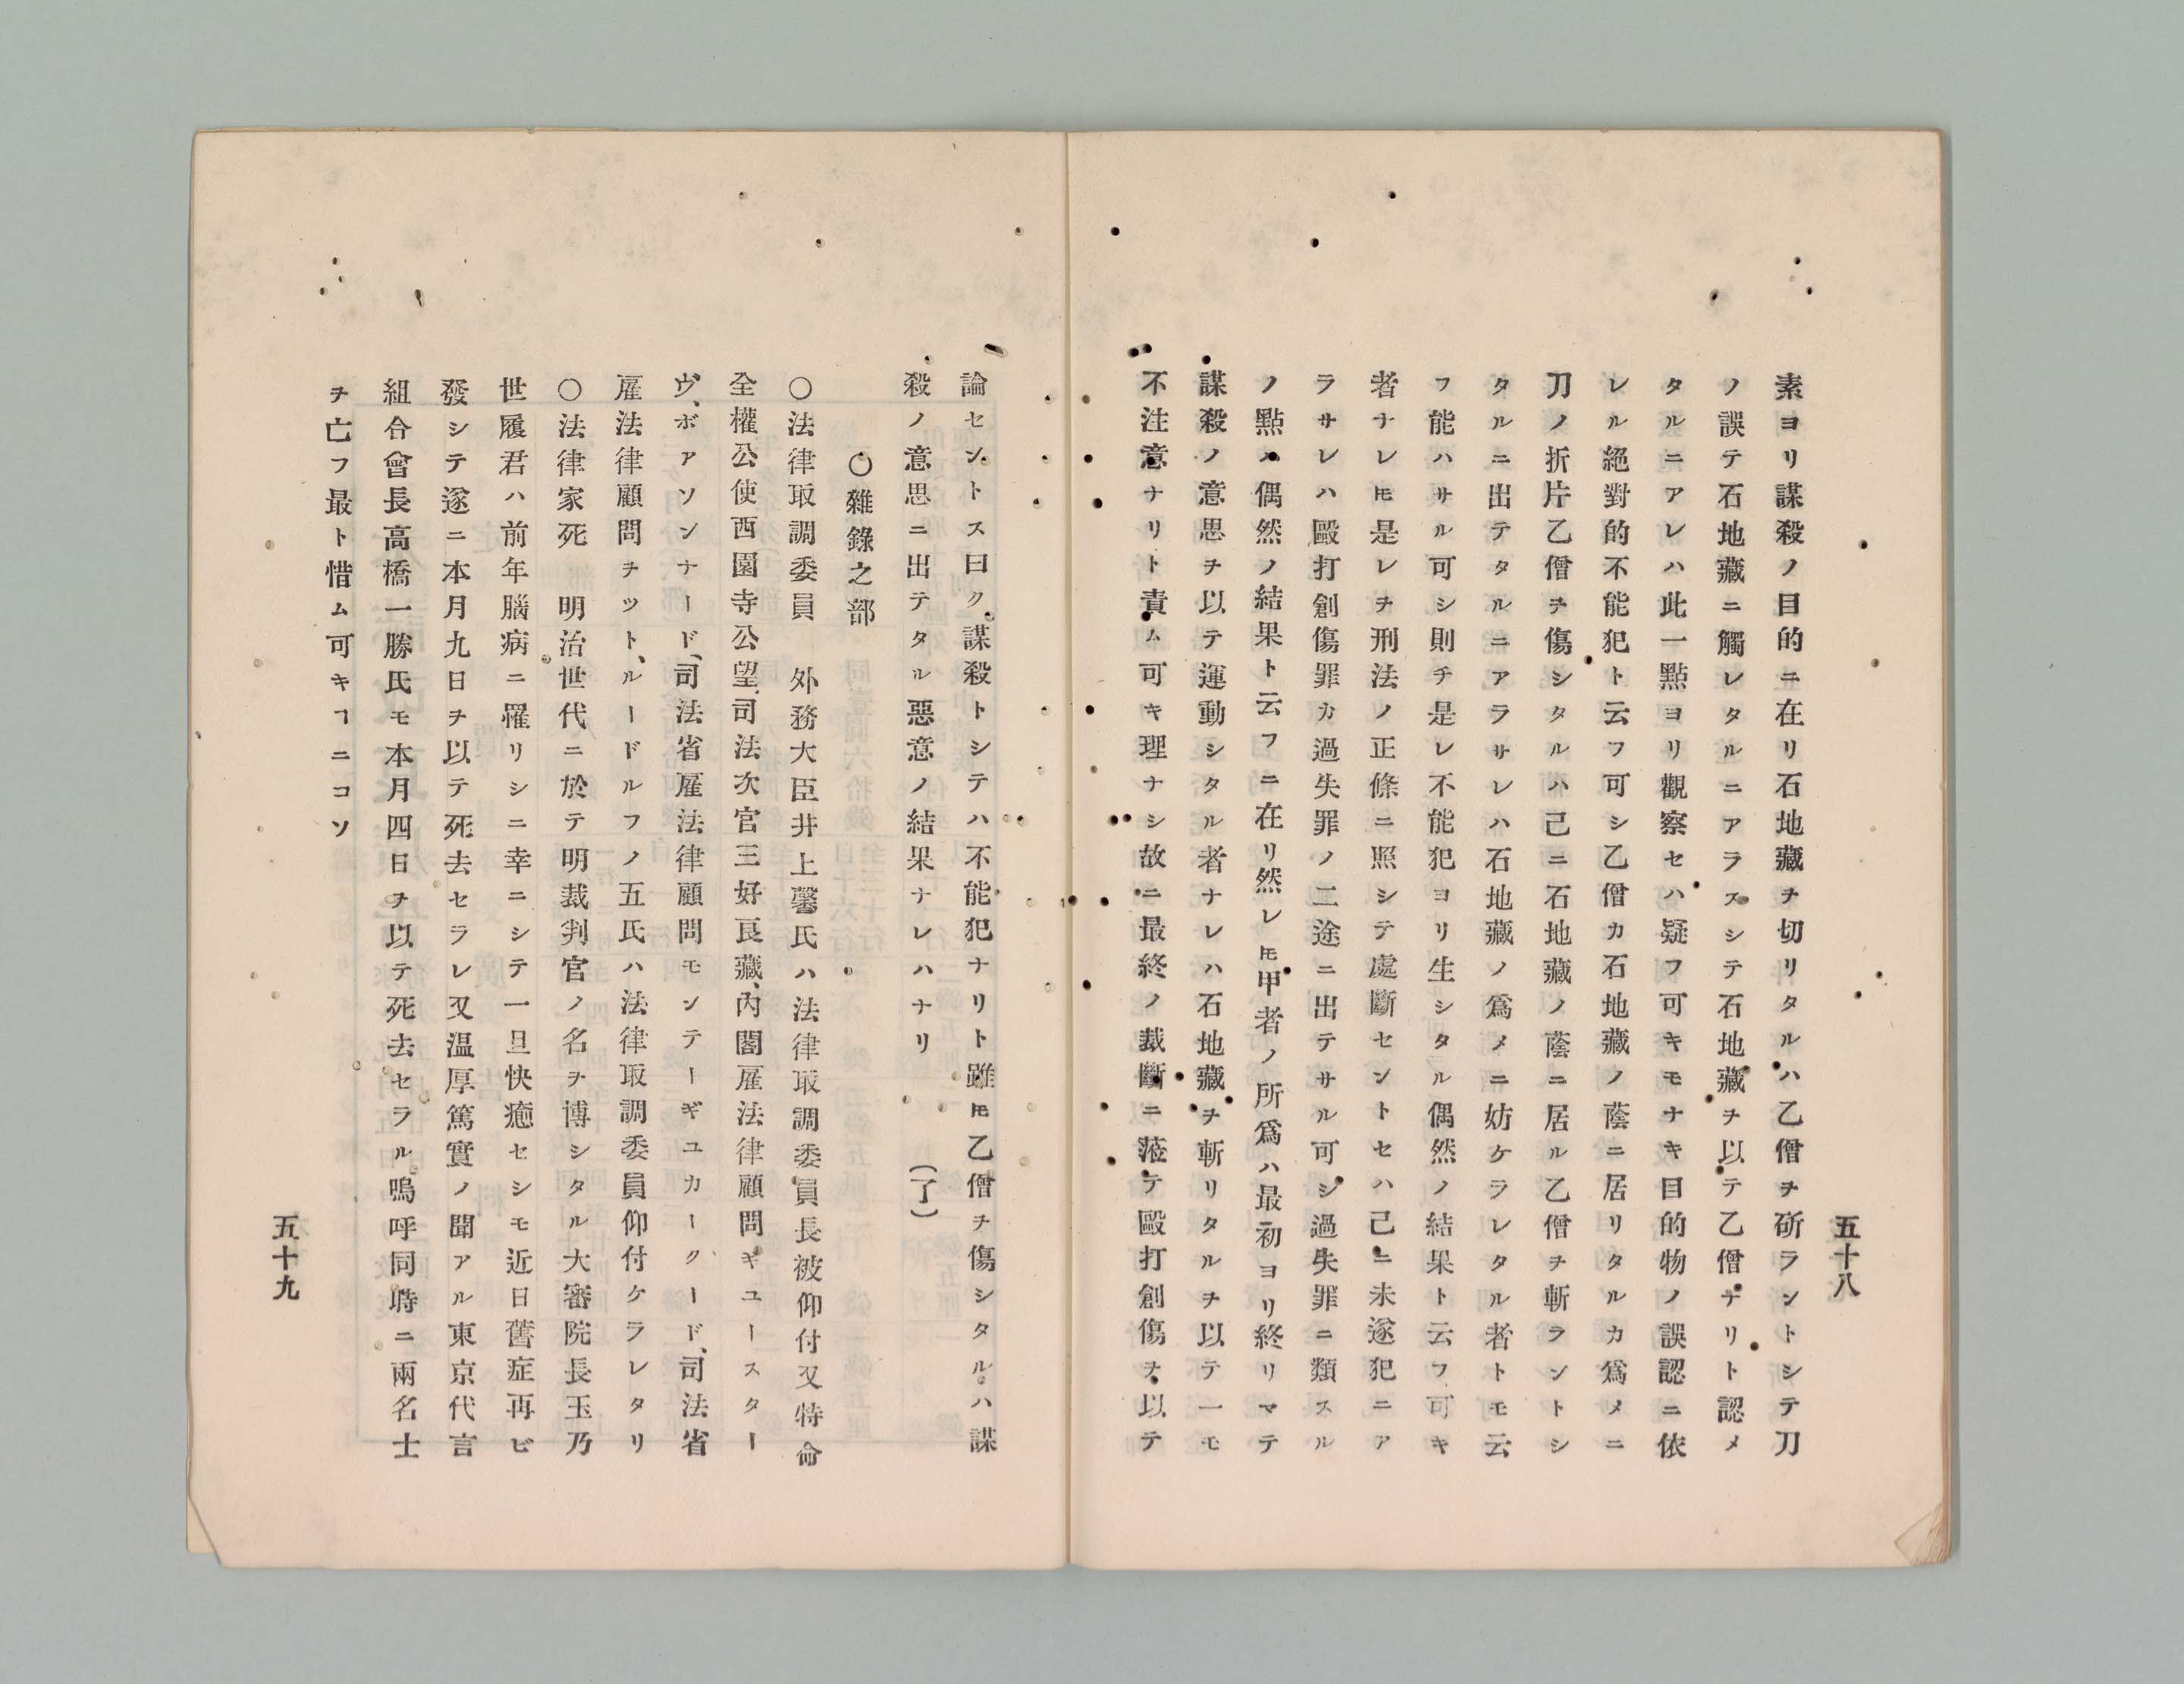 五十八
素ヨリ謀殺ノ目的ニ在リ石地藏ヲ切リタルハ乙僧ヲ斫ラントシテ刀
ノ誤テ石地藏ニ觸レタルニアラスシテ石地藏ヲ以テ乙僧ナリト認メ
タルニアレハ此一點ヨリ觀察セハ疑フ可キモナキ目的物ノ誤認ニ依
レル絕對的不能犯ト云フ可シ乙僧カ石地藏ノ蔭ニ居リタルカ爲メニ
刀ノ折片乙僧ヲ傷シタルハ己ニ石地藏ノ蔭ニ居ル乙僧ヲ斬ラントシ
タルニ出テタルニアラサレハ石地藏ノ爲メニ妨ケラレタル者トモ云
フ能ハサル可シ則チ是レ不能犯ヨリ生シタル偶然ノ結果ト云フ可キ
者ナレ𪜈是レヲ刑法ノ正條ニ照シテ處斷セントセハ己ニ未遂犯ニア
ラサレハ毆打創傷罪カ過失罪ノ二途ニ出テサル可シ過失罪ニ類スル
ノ點ハ偶然ノ結果ト云フニ在リ然レ𪜈甲者ノ所爲ハ最初ヨリ終リマテ
謀殺ノ意思ヲ以テ運動シタル者ナレハ石地藏ヲ斬リタルヲ以テ一モ
不注意ナリト責ム可キ理ナシ故ニ最終ノ裁斷ニ蒞テ毆打創傷ヲ以テ
論セントス曰ク謀殺トシテハ不能犯ナリト雖𪜈乙僧ヲ傷シタルハ謀
殺ノ意思ニ出テタル惡意ノ結果ナレハナリ（了）
〇雜錄之部
〇法律取調委員　外務大臣井上馨氏ハ法律取調委員長被仰付又特命
全權公使西園寺公望、司法次官三好良藏、內閣雇法律顧問ギユースター
ヴ、ボアソンナード、司法省雇法律顧問モンテーギユカークード、司法省
雇法律顧問ヲツト、ルードルフノ五氏ハ法律取調委員仰付ケラレタリ
〇法律家死　明治世代ニ於テ明裁判官ノ名ヲ博シタル大審院長玉乃
世履君ハ前年腦病ニ罹リシニ幸ニシテ一旦快癒セシモ近日舊症再ビ
發シテ遂ニ本月九日ヲ以テ死去セラレ又温厚篤實ノ聞アル東京代言
組合會長高橋一勝氏モ本月四日ヲ以テ死去セラル嗚呼同時ニ兩名士
ヲ亡フ最ト惜ム可キヿニコソ
五十九